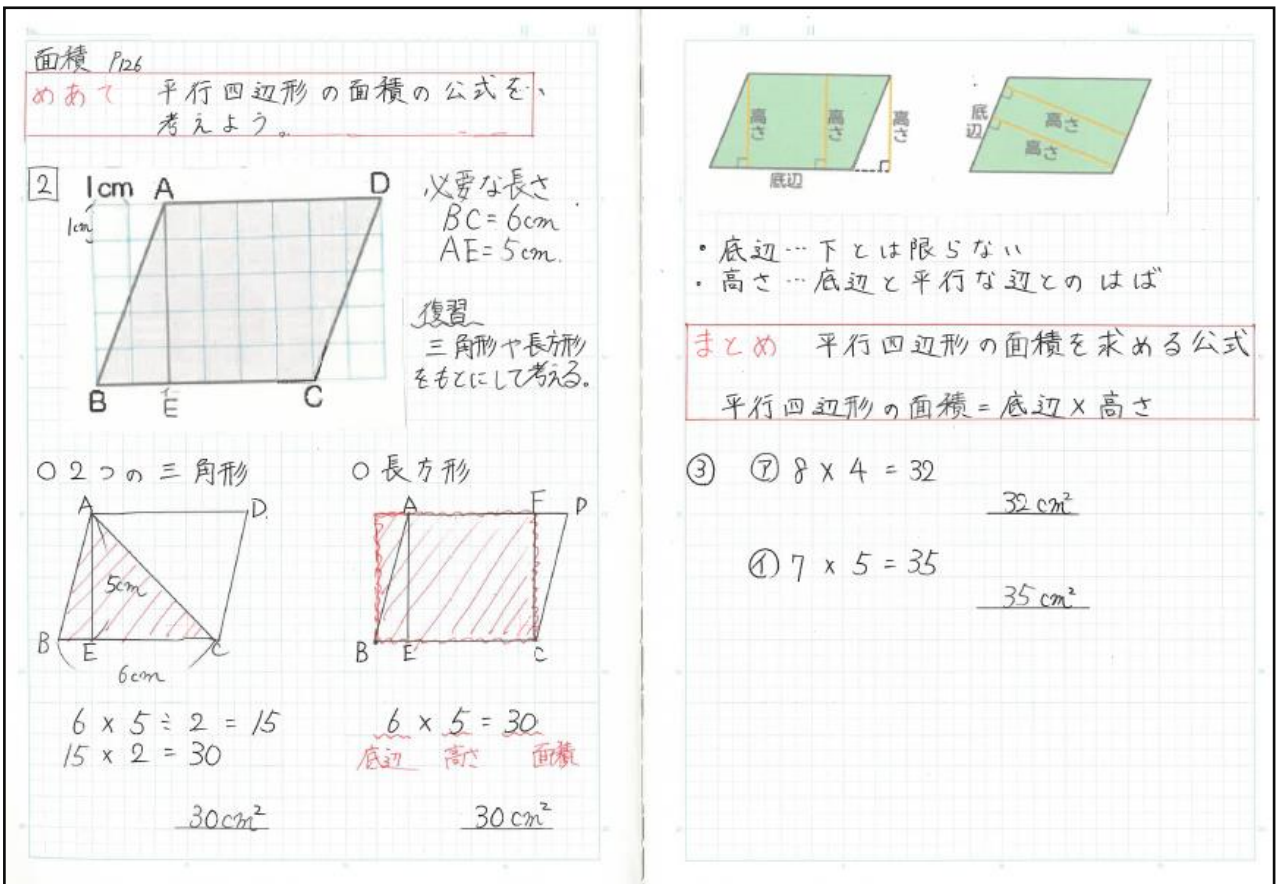 面積 P126
めあて 平行四辺形の面積の公式を、
考えよう。
2
1cm A D
1cm
B E C
必要な長さ
BC=6cm
AE=5cm.
復習
三角形や長方形
をもとにして考える。
○2つの三角形
A D
5cm
B E C
6cm
6×5÷2=15
15×2=30
30cm²
○長方形
A F D
B E C
6×5=30
底辺 高さ 面積
30cm²
高さ 高さ 高さ
底辺
底辺
高さ
高さ
・底辺…下とは限らない
・高さ…底辺と平行な辺とのはば
まとめ 平行四辺形の面積を求める公式
平行四辺形の面積=底辺×高さ
③ ㋐ 8×4=32
32cm²
㋑ 7×5=35
35cm²